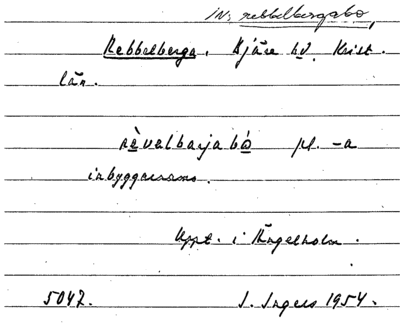 IN: rebbelbergabo,
Rebbelberga. Bjäre hd. Krist.
län.
rèvalbarjabó pl. -a
inbyggarna.
Uppt. i Ängelholm.
5047. I. Ingers 1954.